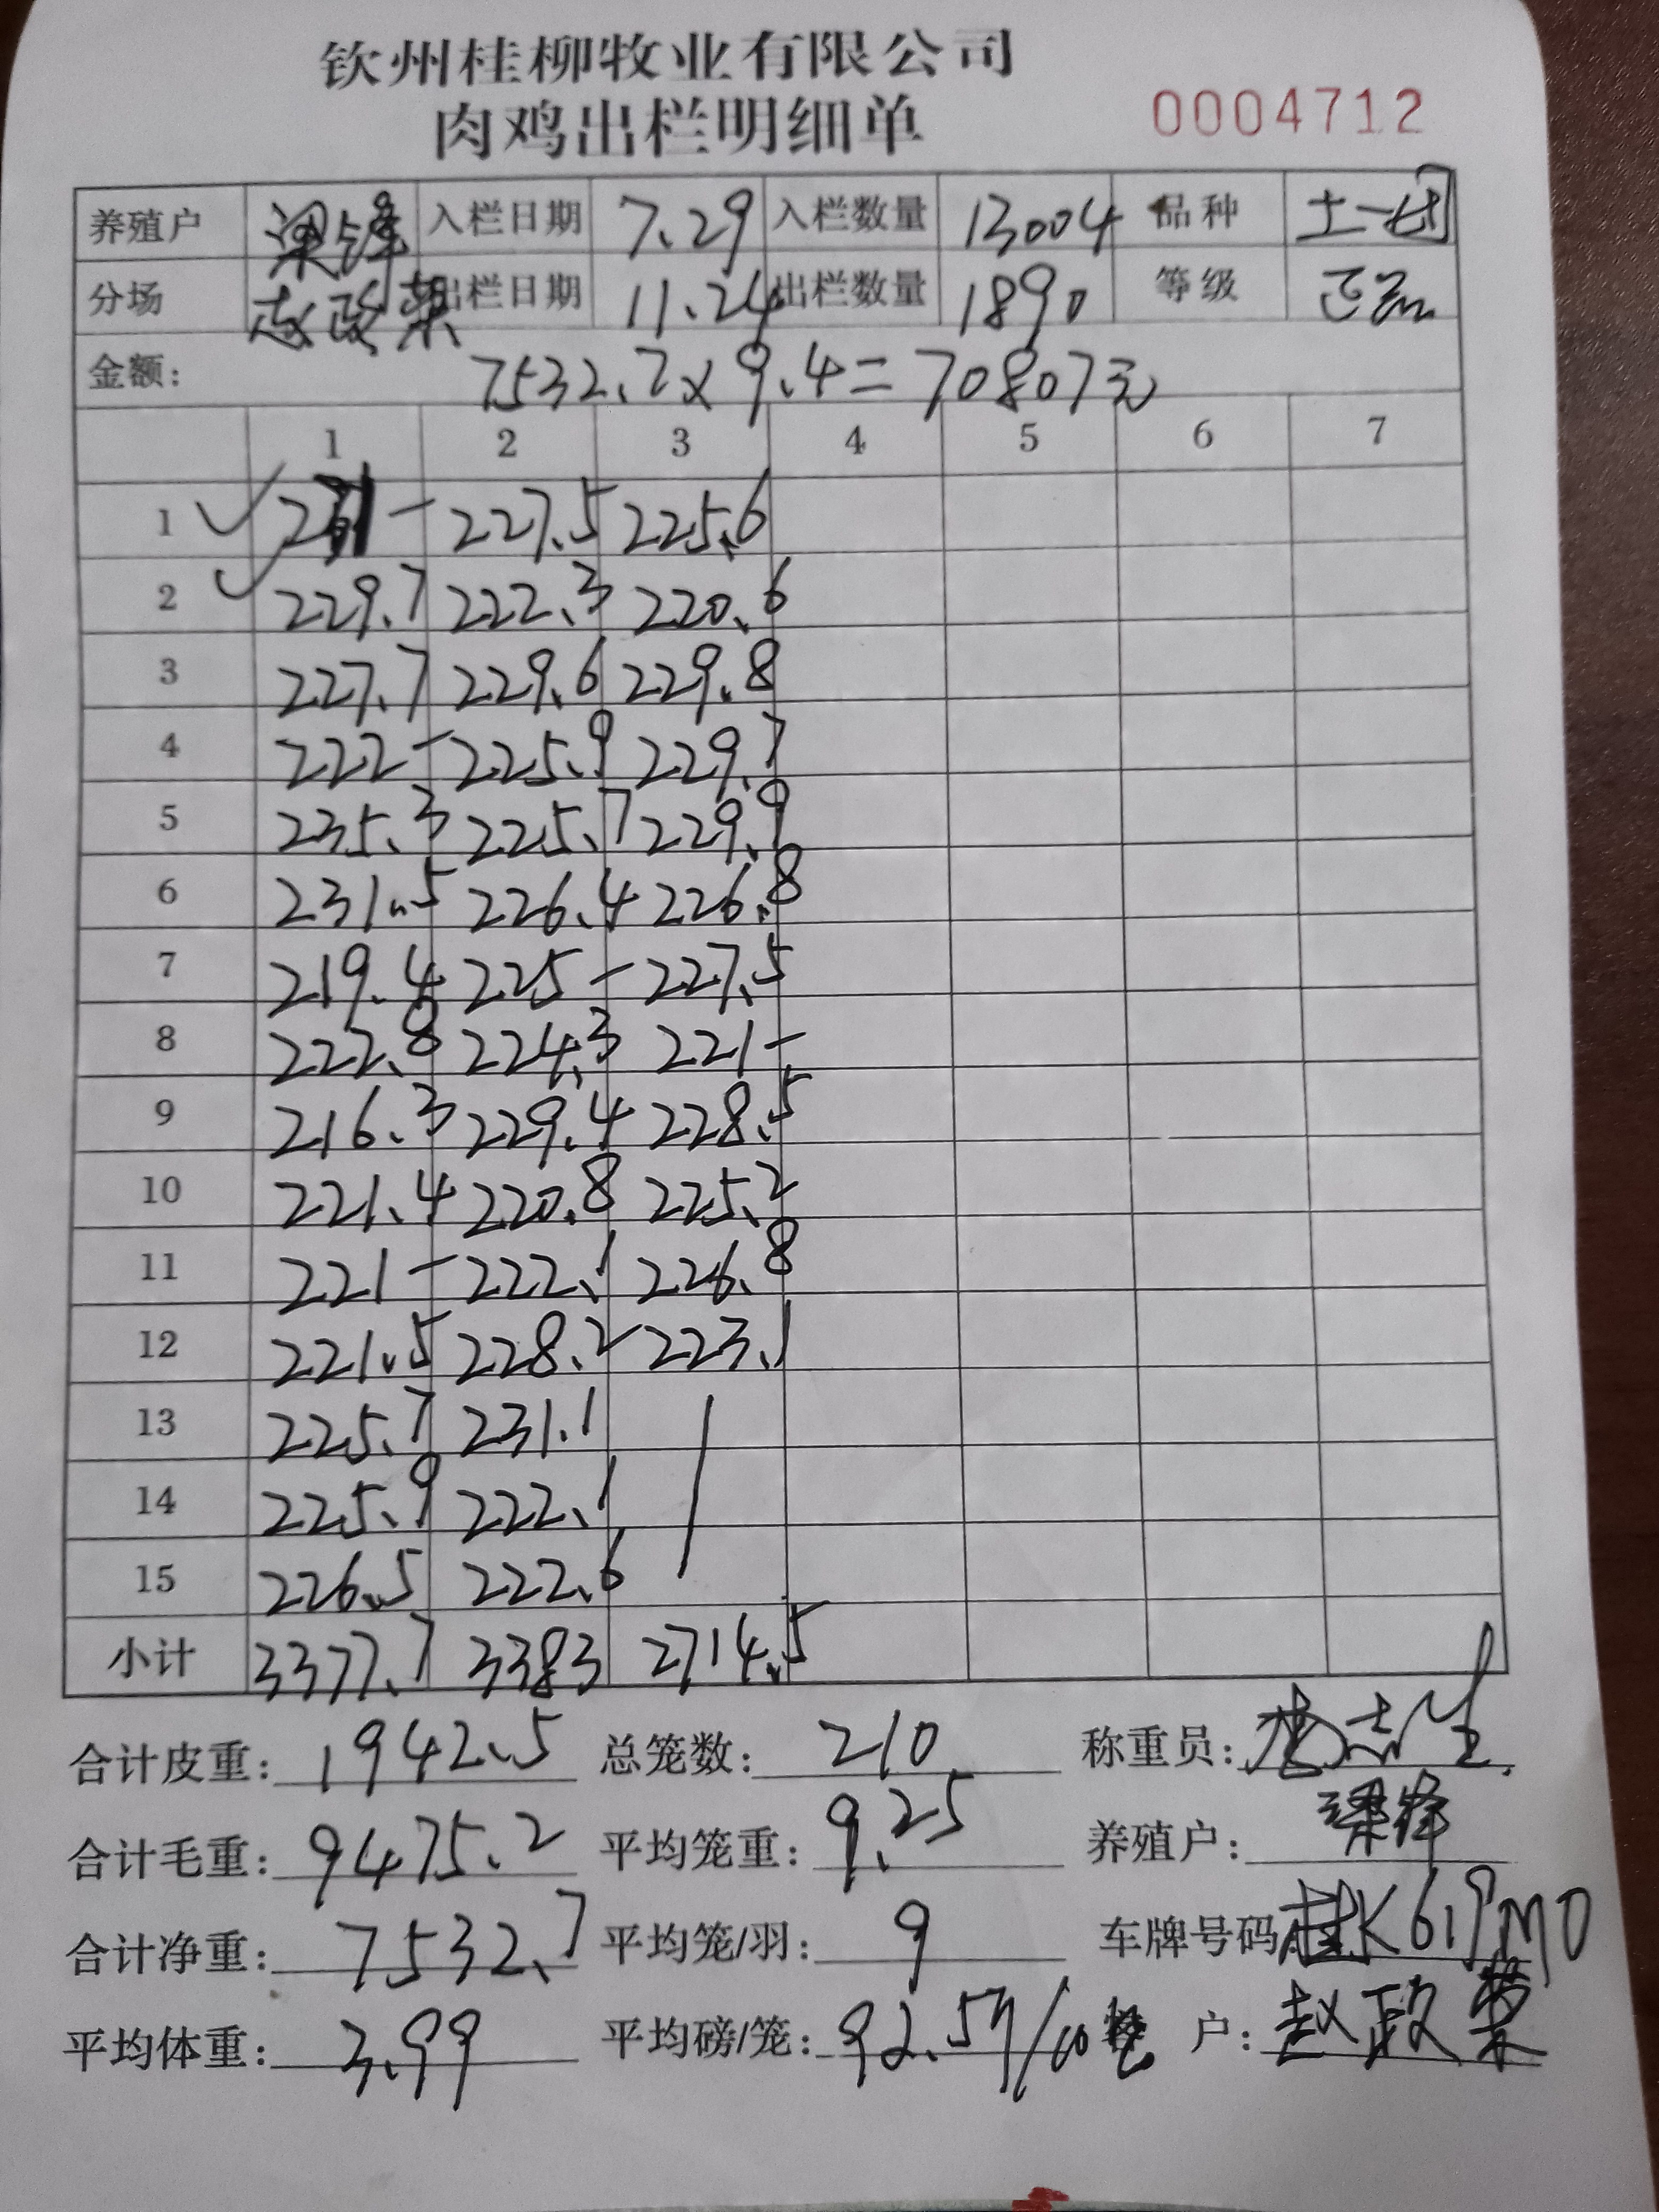 钦州桂柳牧业有限公司
肉鸡出栏明细单 0004712
养殖户 梁锋 入栏日期 7.29 入栏数量 13004 品种 土一
分场 赵政荣 出栏日期 11.24 出栏数量 1890 等级 正品
金额: 7532.7×9.4=70807元
1 2 3 4 5 6 7
1 231- 227.5 225.6
2 229.7 222.3 220.6
3 227.7 229.6 229.8
4 222- 225.9 229.7
5 235.3 225.7 229.9
6 231.5 226.4 226.8
7 219.4 225- 227.5
8 222.8 224.3 221-
9 216.3 229.4 228.5
10 221.4 220.8 225.2
11 221- 222.1 226.8
12 221.5 228.2 223.1
13 225.7 231.1
14 225.9 222.1
15 226.5 222.6
小计 3377.7 3383 2714.5
合计皮重: 1942.5 总笼数: 210 称重员:
合计毛重: 9475.2 平均笼重: 9.25 养殖户: 梁锋
合计净重: 7532.7 平均笼/羽: 9 车牌号码: 桂K619M0
平均体重: 3.99 平均磅/笼: 92.5 户: 赵政荣